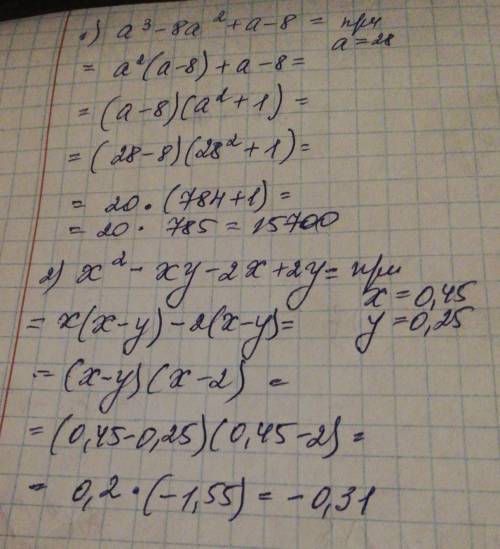 1) a³ - 8a² + a - 8 = при
a = 28
= a²(a - 8) + a - 8 =
= (a - 8)(a² + 1) =
= (28 - 8)(28² + 1) =
= 20 · (784 + 1) =
= 20 · 785 = 15700
2) x² - xy - 2x + 2y = при
x = 0,45
= x(x - y) - 2(x - y) =
y = 0,25
= (x - y)(x - 2) =
= (0,45 - 0,25)(0,45 - 2) =
= 0,2 · (-1,55) = -0,31